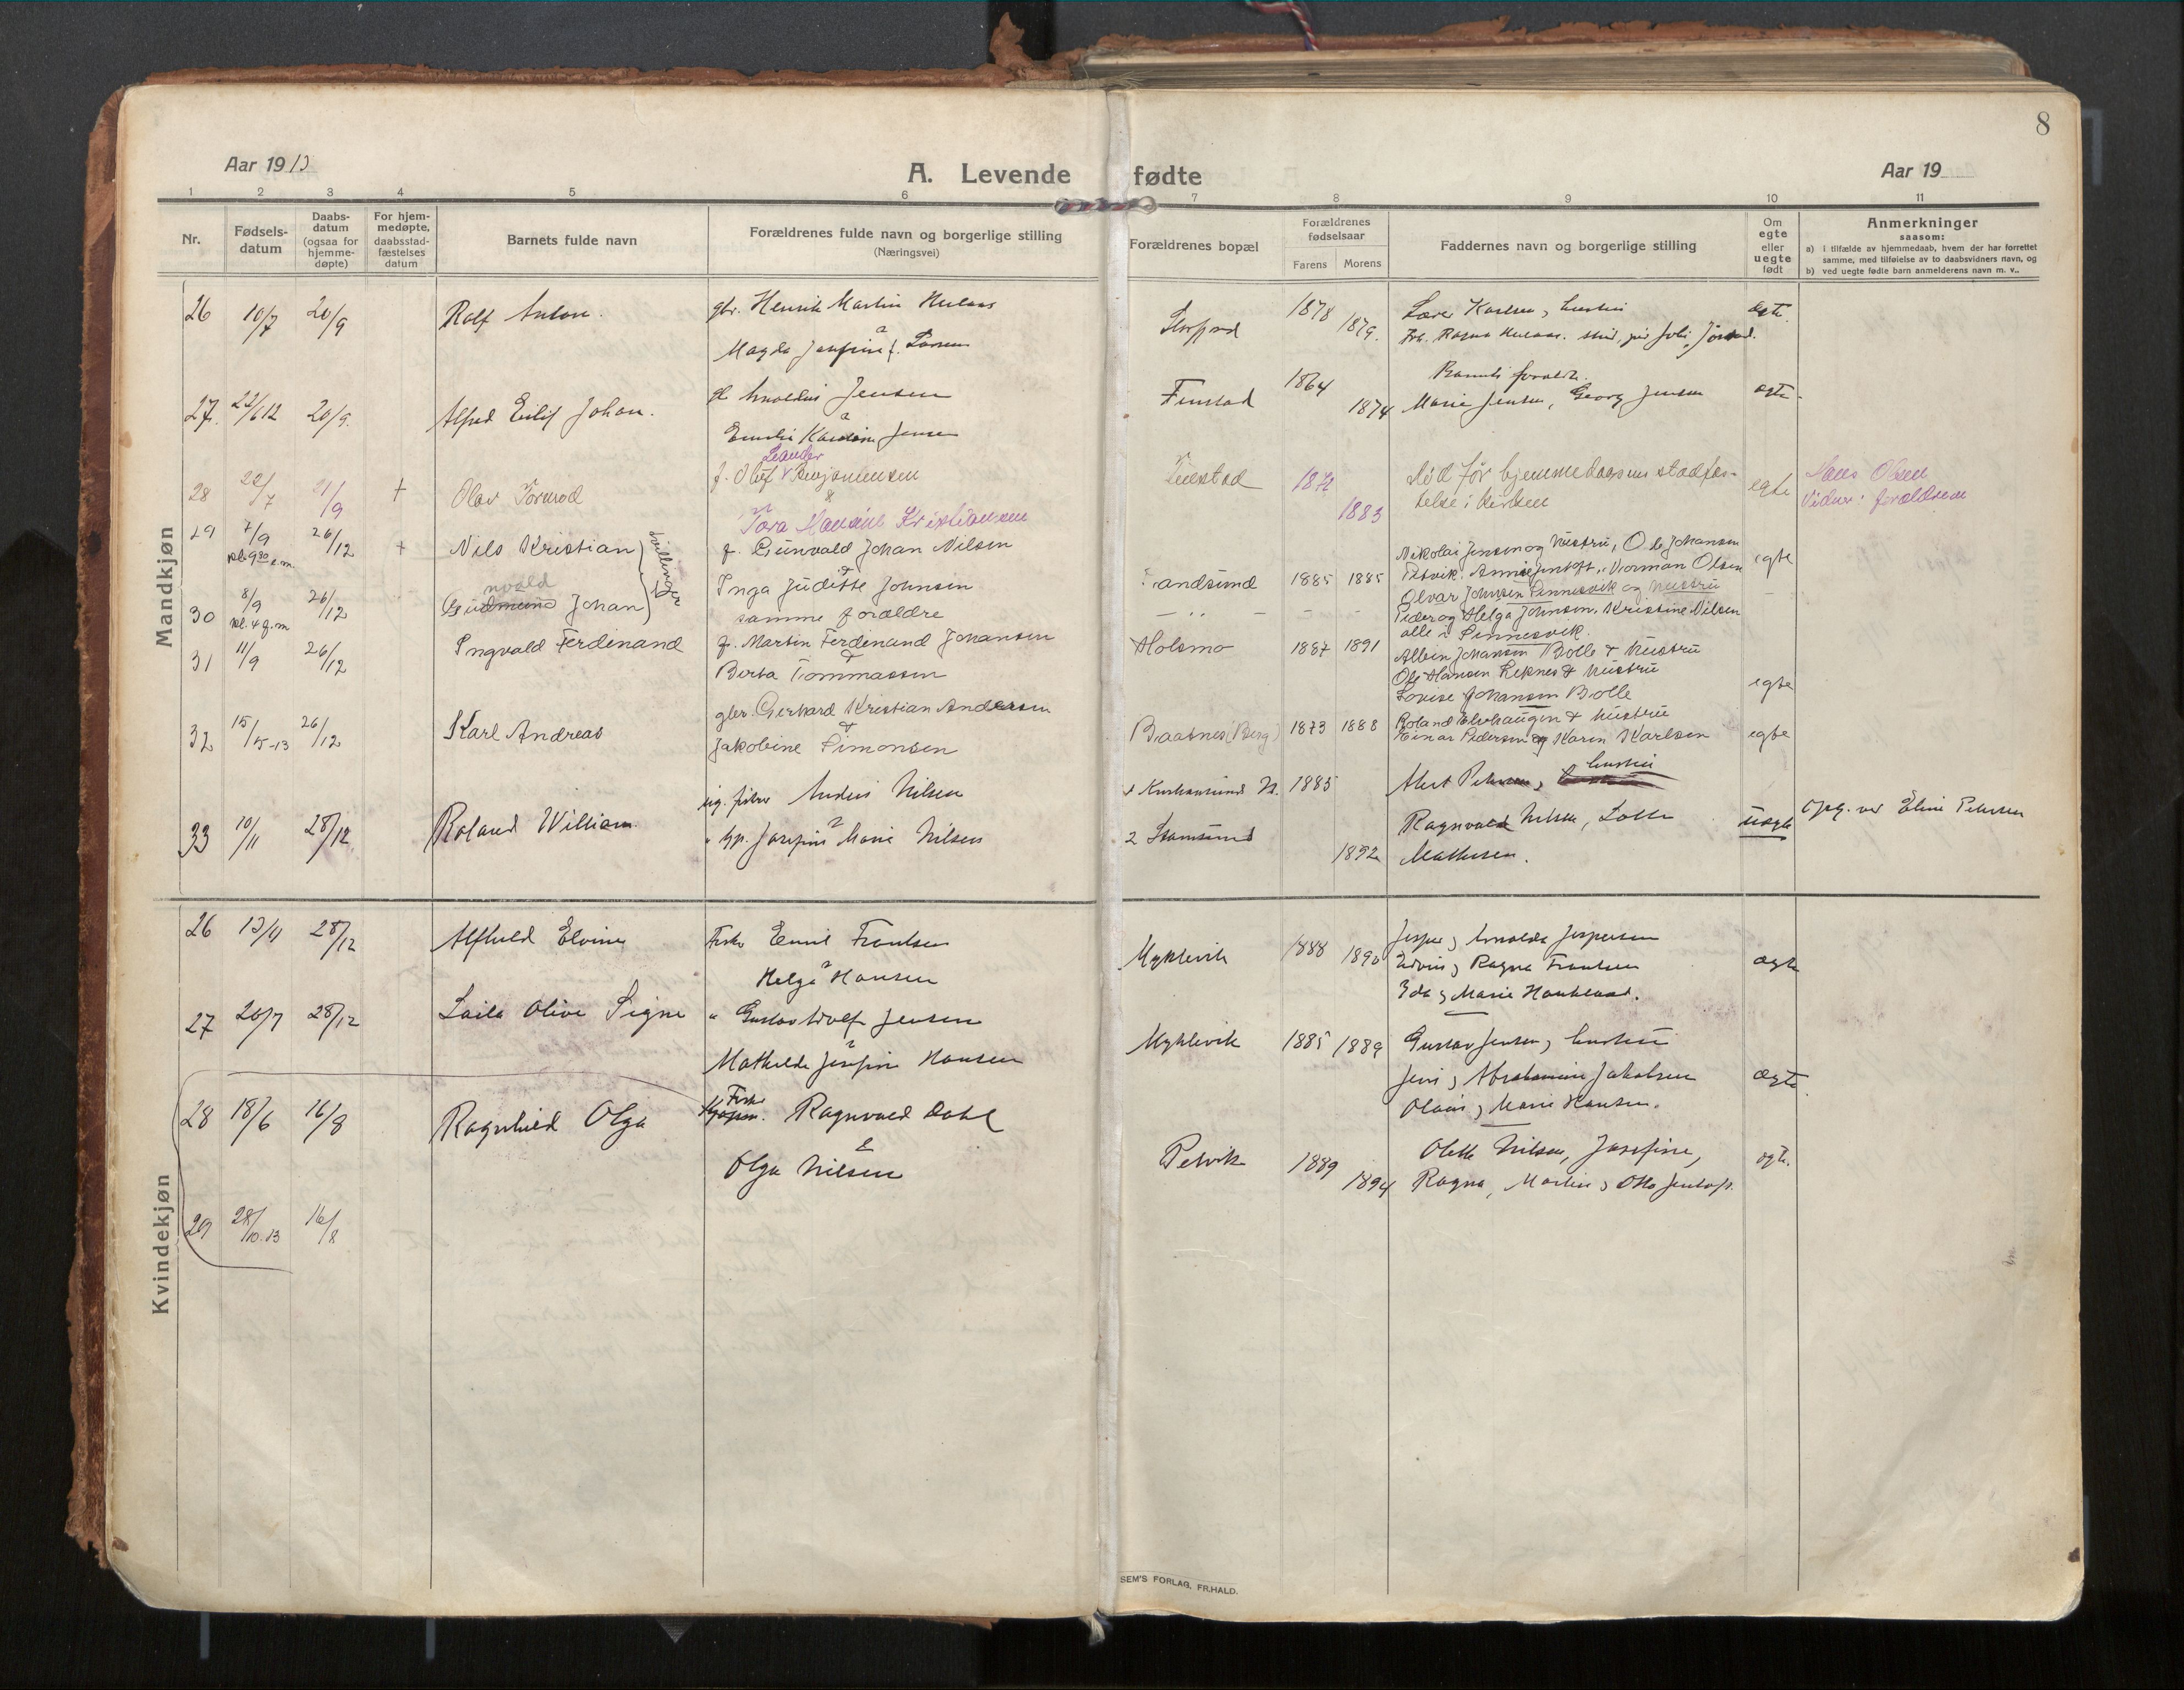 8
Aar 1913
A. Levende fødte
Aar 19
1 2 3 4 5 6 7 8 9 10 11
Nr.
Fødsels-
datum
Daabs-
datum
(ogsaa for
hjemme-
døpte)
For hjem-
medøpte,
daabsstad-
fæstelses
datum
Barnets fulde navn
Forældrenes fulde navn og borgerlige stilling
(Næringsvei)
Forældrenes bopæl
Forældrenes
fødselsaar
Farens Morens
Faddernes navn og borgerlige stilling
Om
egte
eller
uegte
født
Anmerkninger
saasom:
a) i tilfælde av hjemmedaab, hvem der har forrettet
samme, med tilføielse av to daabsvidners navn, og
b) ved uegte fødte barn anmelderens navn m. v..
Mandkjøn
26 10/7 20/9 Rolf Anton.
gbr. Henrik Martin
Magda
1878 1879.
27. 22/6 12 20/9. Alfred Eilif Johan.
Jensen
&
Emelie Jensen
Finstad 1864 1874
Marie Jensen, Georg Jensen
28 22/7 21/9 + Olav Tormod
Leander
f. Oluf v Benjaminsen
&
Tora Hansine Kristiansen
Finstad 1883
Død før hjemmedaapens stadfæs-
telse i kirken
egte
Hans Olsen
Vidner: forældrene
29 7/9 kl. 9 30 e.m. 26/12 + Nils Kristian
tvillinger
f. Gunvald Johan Nilsen
&
Inga Juditte Johnsen
Sandsund 1885 1885
Nikolai Jensen og hustru, Ole Johansen
Petvik. Annie Jentoft, Norman Olsen
Olvar Johnsen Sennesvik og hustru
egte
30 8/9 kl. 4 f.m 26/12 Gudmund nvald Johan
samme forældre
Peder og Helga Johnsen, Kristine Nilsen
alle i Sennesvik.
31 11/9 26/12 Ingvald Ferdinand
f. Martin Ferdinand Johansen
&
Berta Tommassen
Holsmo 1887 1891
Albin Johansen Bolle & hustru
Ole Hansen Leknes & hustru
Lovise Johansen Bolle
egte
32 15/5-13 26/12 Karl Andreas
gbr. Gerhard Kristian Andersen
&
Jakobine Simonsen
Baatnes (Berg) 1873 1888
Roland Elvehaugen & hustru
Einar Pedersen og Karen Karlsen
egte
33 10/11 28/12 Roland William
ug. fisker Anders Nilsen
&
Josefine Marie Nilsen
1885
2 Stamsund
1892
hustru
Ragnvald Nilsen, Lotte
Mathisen.
uegte
Opg. ved Eline Petersen
Kvindekjøn
26 13/11 28/12 Alfhild Elvine
Fisker Emil Frantsen
&
Helga Hansen
Myklevik 1888 1890
Jesper & Arnolda Jespersen
Edvin & Ragna Frantsen
Ida & Marie Haukland.
ægte
27 20/7 28/12 Laila Olive Signe
" Gustav Adolf Jensen
&
Mathilde Josefine Hansen
Myklevik 1885 1889
Gustav Jensen & hustru
Jens & Abrahamine Jakobsen
Olaus & Marie Hansen.
ægte.
28 18/6 16/8 Ragnhild Olga
Fisker
Ragnvald Dahl
&
Olga Nilsen
Petvik 1889 1894
Olette Nilsen, Josefine,
Ragna, Martin & Otto Jentoft.
egte.
29 28/10.13 16/8
SEM'S FORLAG, FR.HALD.